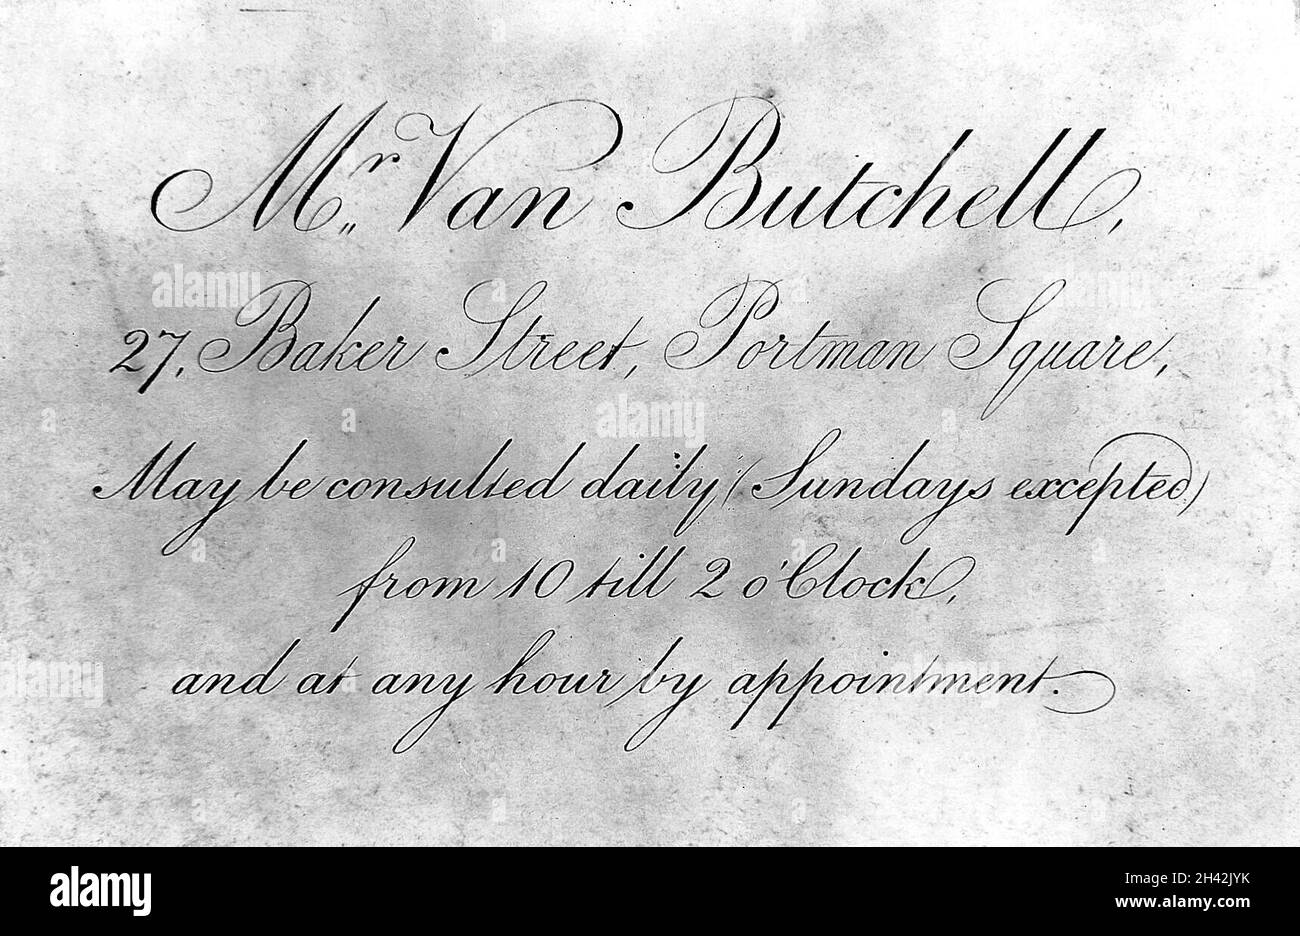 Mr. Van Butchell,
27, Baker Street, Portman Square,
May be consulted daily (Sundays excepted)
from 10 till 2 o'Clock,
and at any hour by appointment.
alamy
Image ID: 2H42JYK
www.alamy.com